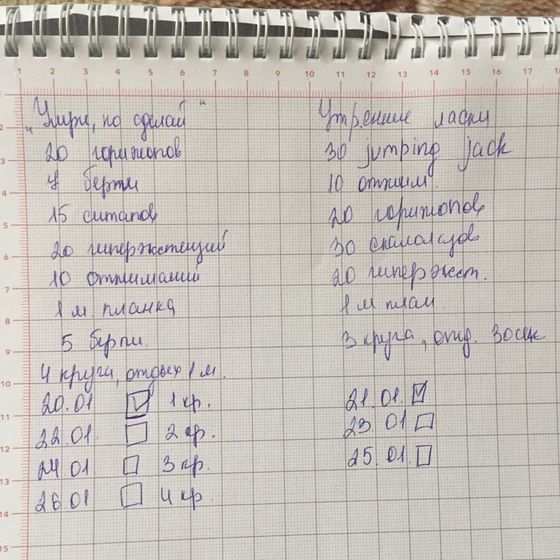 "Умри, но сделай"
20 горижопов
7 берпи
15 ситапов
20 гиперэкстензий
10 отжиманий
1 м. планка
5 берпи.
4 круга, отдых 1 м.
20.01 1 кр.
22.01. 2 кр.
24.01 3 кр.
26.01 4 кр.
Утренние ласки
30 jumping jack
10 отжим.
20 горижопов
30 скалолазов
20 гиперэкст.
1 м план
3 круга, отд. 30 сек
21.01.
23.01
25.01.